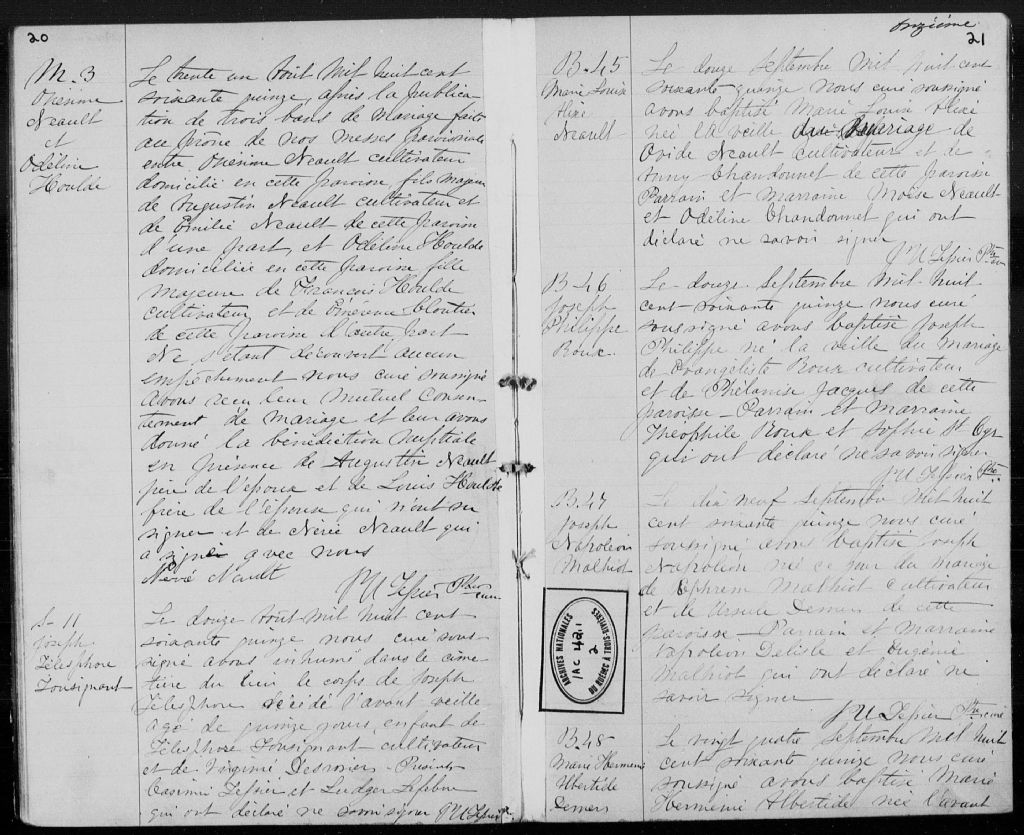 20
M. 3
Onésime
Neault
et
Odéline
Houlde
Le trente un Août Mil huit cent
soixante quinze, après la publica
tion de trois bans de Mariage faite
au prône de nos messes paroissiales
entre Onésime Neault cultivateur
domicilié en cette paroisse, fils majeur
de Augustin Neault cultivateur et
de Emilie Neault de cette paroisse
d'une part, et Odéline Houlde
domiciliée en cette paroisse fille
majeure de François Houlde
cultivateur et de Cloutier
de cette paroisse d'autre part
Ne s'étant découvert aucun
empêchement nous curé soussigné
avons reçu leur mutuel Consen-
tement de mariage et leur avons
donné la bénédiction nuptiale
en présence de Augustin Neault
père de l'époux et de Louis Houlde
frère de l'épouse qui n'ont su
signer et de Nérée Neault qui
a signé avec nous
Néré Nault
J U Tessier Ptre
curé
S- 11
Joseph
Télesphore
Tousignant
Le douze Août Mil huit cent
soixante quinze nous curé sous-
signé avons inhumé dans le cime-
tière du lieu le corps de Joseph
Télesphore décédé l'avant veille
agé de quinze jours, enfant de
Télesphore Tousignant cultivateur
et de Virginie Désrosiers - Présents
Casimir Tessier et Ludger Lefebvre
qui ont déclaré ne savoir signer J U Tessier
onzième
21
B-45
Marie Louise
Alice
Neault
Le douze Septembre Mil huit cent
soixante quinze nous curé soussigné
avons baptisé Marie Louise Alice
née la veille du Mariage de
Ovide Neault cultivateur et de
Anny Chandonnet de cette paroisse
Parrain et Marraine Moïse Neault
et Odéline Chandonnet qui ont
déclaré ne savoir signer
J U Tessier Ptre
curé
B-46
Joseph
Philippe
Roux
Le douze Septembre Mil huit
cent soixante quinze nous curé
soussigné avons baptisé Joseph
Philippe né la veille du Mariage
de Evangéliste Roux cultivateur
et de Phélanise Jacques de cette
paroisse - Parrain et Marraine
Théophile Roux et Sophie St Cyr
qui ont déclaré ne savoir signer
J U Tessier Ptre
B.47
Joseph
Napoléon
Malhiot
Le dix neuf Septembre Mil huit
cent soixante quinze nous curé
soussigné avons baptisé Joseph
Napoléon né ce jour du mariage
de Ephrem Malhiot cultivateur
et de Ursule Demers de cette
paroisse - Parrain et Marraine
Napoléon Delisle et Eugénie
Malhiot qui ont déclaré ne
savoir signer
J U Tessier Ptre curé
ARCHIVES NATIONALES
IAC 421
2
DU QUÉBEC À TROIS-RIVIÈRES
B.48
Marie Hermenie
Albertide
Demers
Le vingt quatre Septembre Mil huit
cent soixante quinze nous curé
soussigné avons baptisé Marie
Hermenie Albertide née l'avant